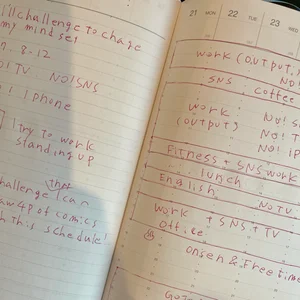 challenge to change
my mindset
8.12
TV NO!SNS
iphone
I try to work
standing up
challenge that I can
4P of comics
this schedule!
21 MON 22 TUE 23 WED
work (OUTPUT)
NO!
SNS coffee
work NO!
(OUTPUT) NO!
NO!
Fitness + SNS work
lunch
English NO TV
work + SNS + TV
Office
onsen & Freetime